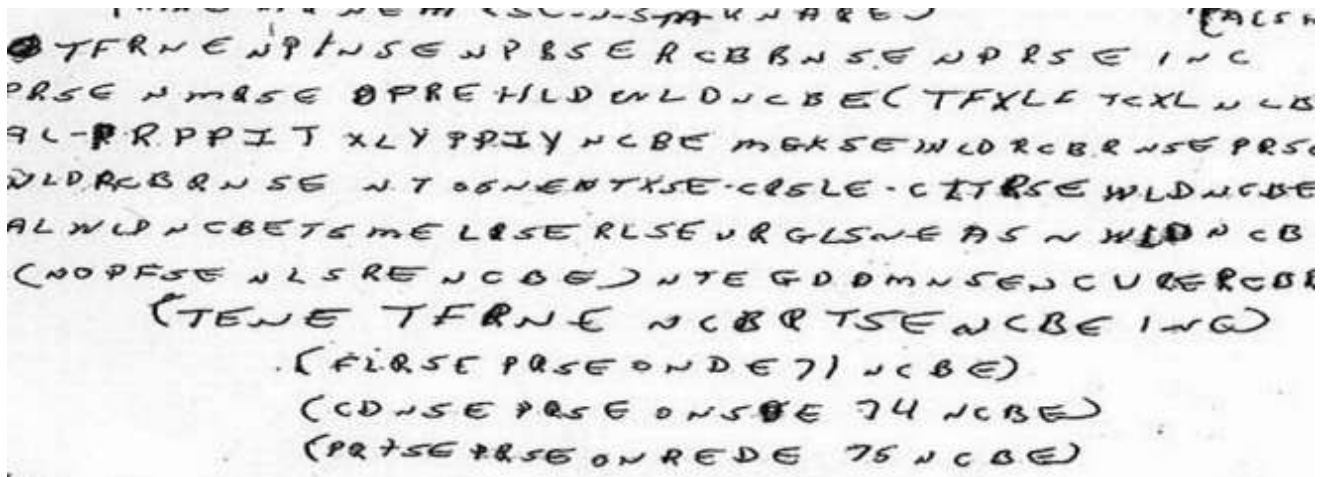 TFRNENPINSENPBSERCBBNSENPRSEINC
PRSENMRSEOPREHLDWLDNCBE(TFXLFTCXLNCB
AL-PRPPITXLYPPIYNCBEMGKSEWLDRCBRNSEPRSE
WLDRCBRNSENTOSNENTXSE-CRSLE-CITRSEWLDNCBE
ALWLDNCBETSMELRSERLSEURGLSNEASNWLDNCB
(NOPFSENLSRENCBE)NTEGDDMNSENCURERCBR
(TENETFRNENCBRTSENCBEINC)
(FLRSEPRSEONDE71NCBE)
(CDNSEPRSEONSDE74NCBE)
(PRTSEPRSEONREDE75NCBE)